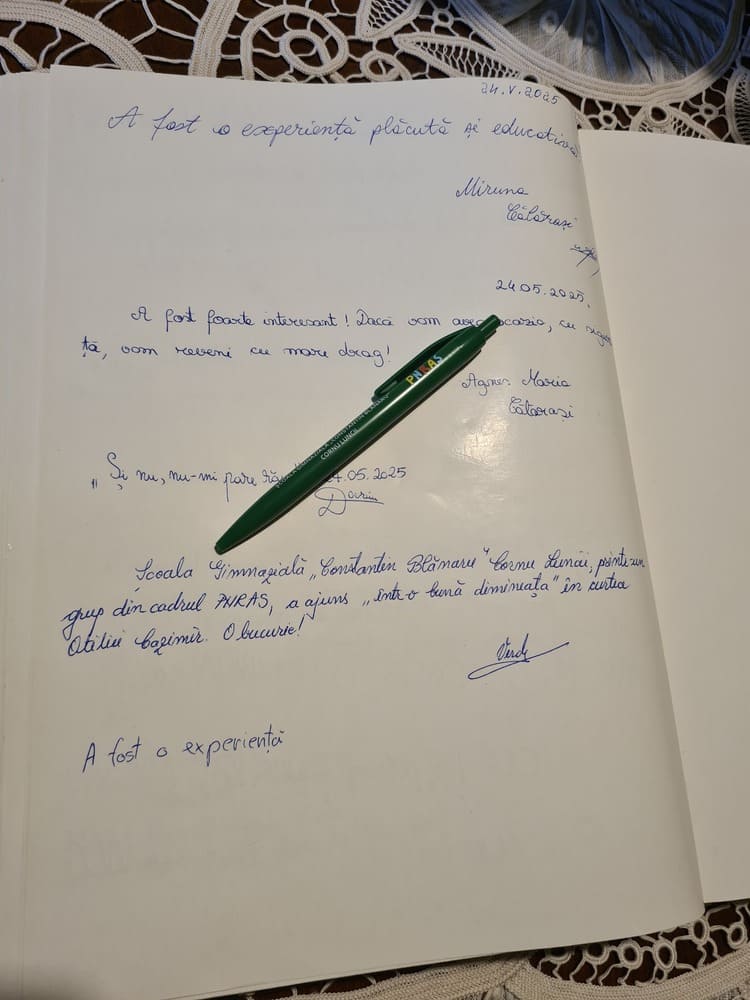 24.V.2025
A fost o experiență plăcută și educativă
Miruna
Călărași
24.05.2025.
A fost foarte interesant! Dacă vom avea ocazia, cu
ță, vom reveni cu mare drag!
Agnes Maria
Călărași
PNRAS
CORNU LUNCII
„Și nu, nu-mi pare .05.2025
Școala Gimnazială „Constantin Blănaru" Cornu Luncii, printr-un
grup din cadrul PNRAS, a ajuns „într-o bună dimineața" în curtea
Otiliei Cazimir. O bucurie!
A fost o experiență